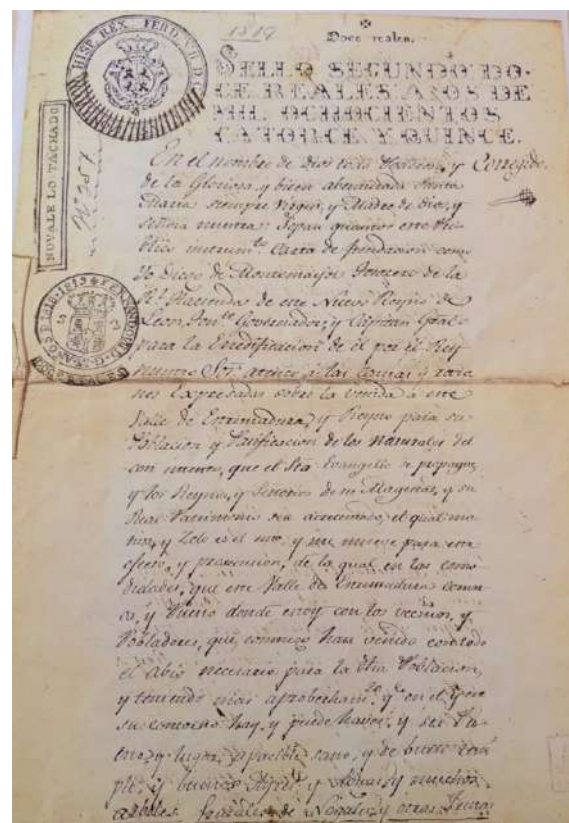 1819
Doce reales.
SELLO SEGUNDO DO-
CE REALES AÑOS DE
MIL OCHOCIENTOS
CATORCE Y QUINCE.
HISP. REX FERD. VII. D. G.
NOVALE LO TACHADO
Nº 257
En el nombre de Dios y Corregido.
de la Gloriosa, y bien abenturada Santa
Maria siempre Virgen, y Madre de Dios, y
señora nuestra Sepan quantos este Pu-
blico instrumto. Carta de fundacion como
Yo Diego de Montemayor Thesorero de la
Rl. Hacienda de este Nuevo Reyno de
Leon, Governador, y Capitan Gral.
para la de él por el Rey
nuestro Sor. atento á las cosas y razo
nes Expresadas sobre la venida á este
Valle de Extremadura, y Reyno para su
Poblacion y Pasificacion de los naturales del
con intento, que el Sto. Evangelio se propague,
y los Reynos, y Señorios de su Magestad, y su
Real Patrimonio sea acrecentado, el qual
y Zelo es el mio, y me mueve para este
efecto, y prosecusion, de la qual en las como
didades, que este Valle de Extremadura
y Puesto donde estoy con los vecinos, y
Pobladores, que conmigo han venido con todo
el abio necesario para la dha. Poblacion,
y teniendo mas aprobechamto. qe. en el
su contorno hay, y puede haver, y ser
y lugar, apasible, sano, y de buen tem
ple, y buenos Ayres, y Aguas, y muchos
arboles frutales de Nogales, y otras frutas